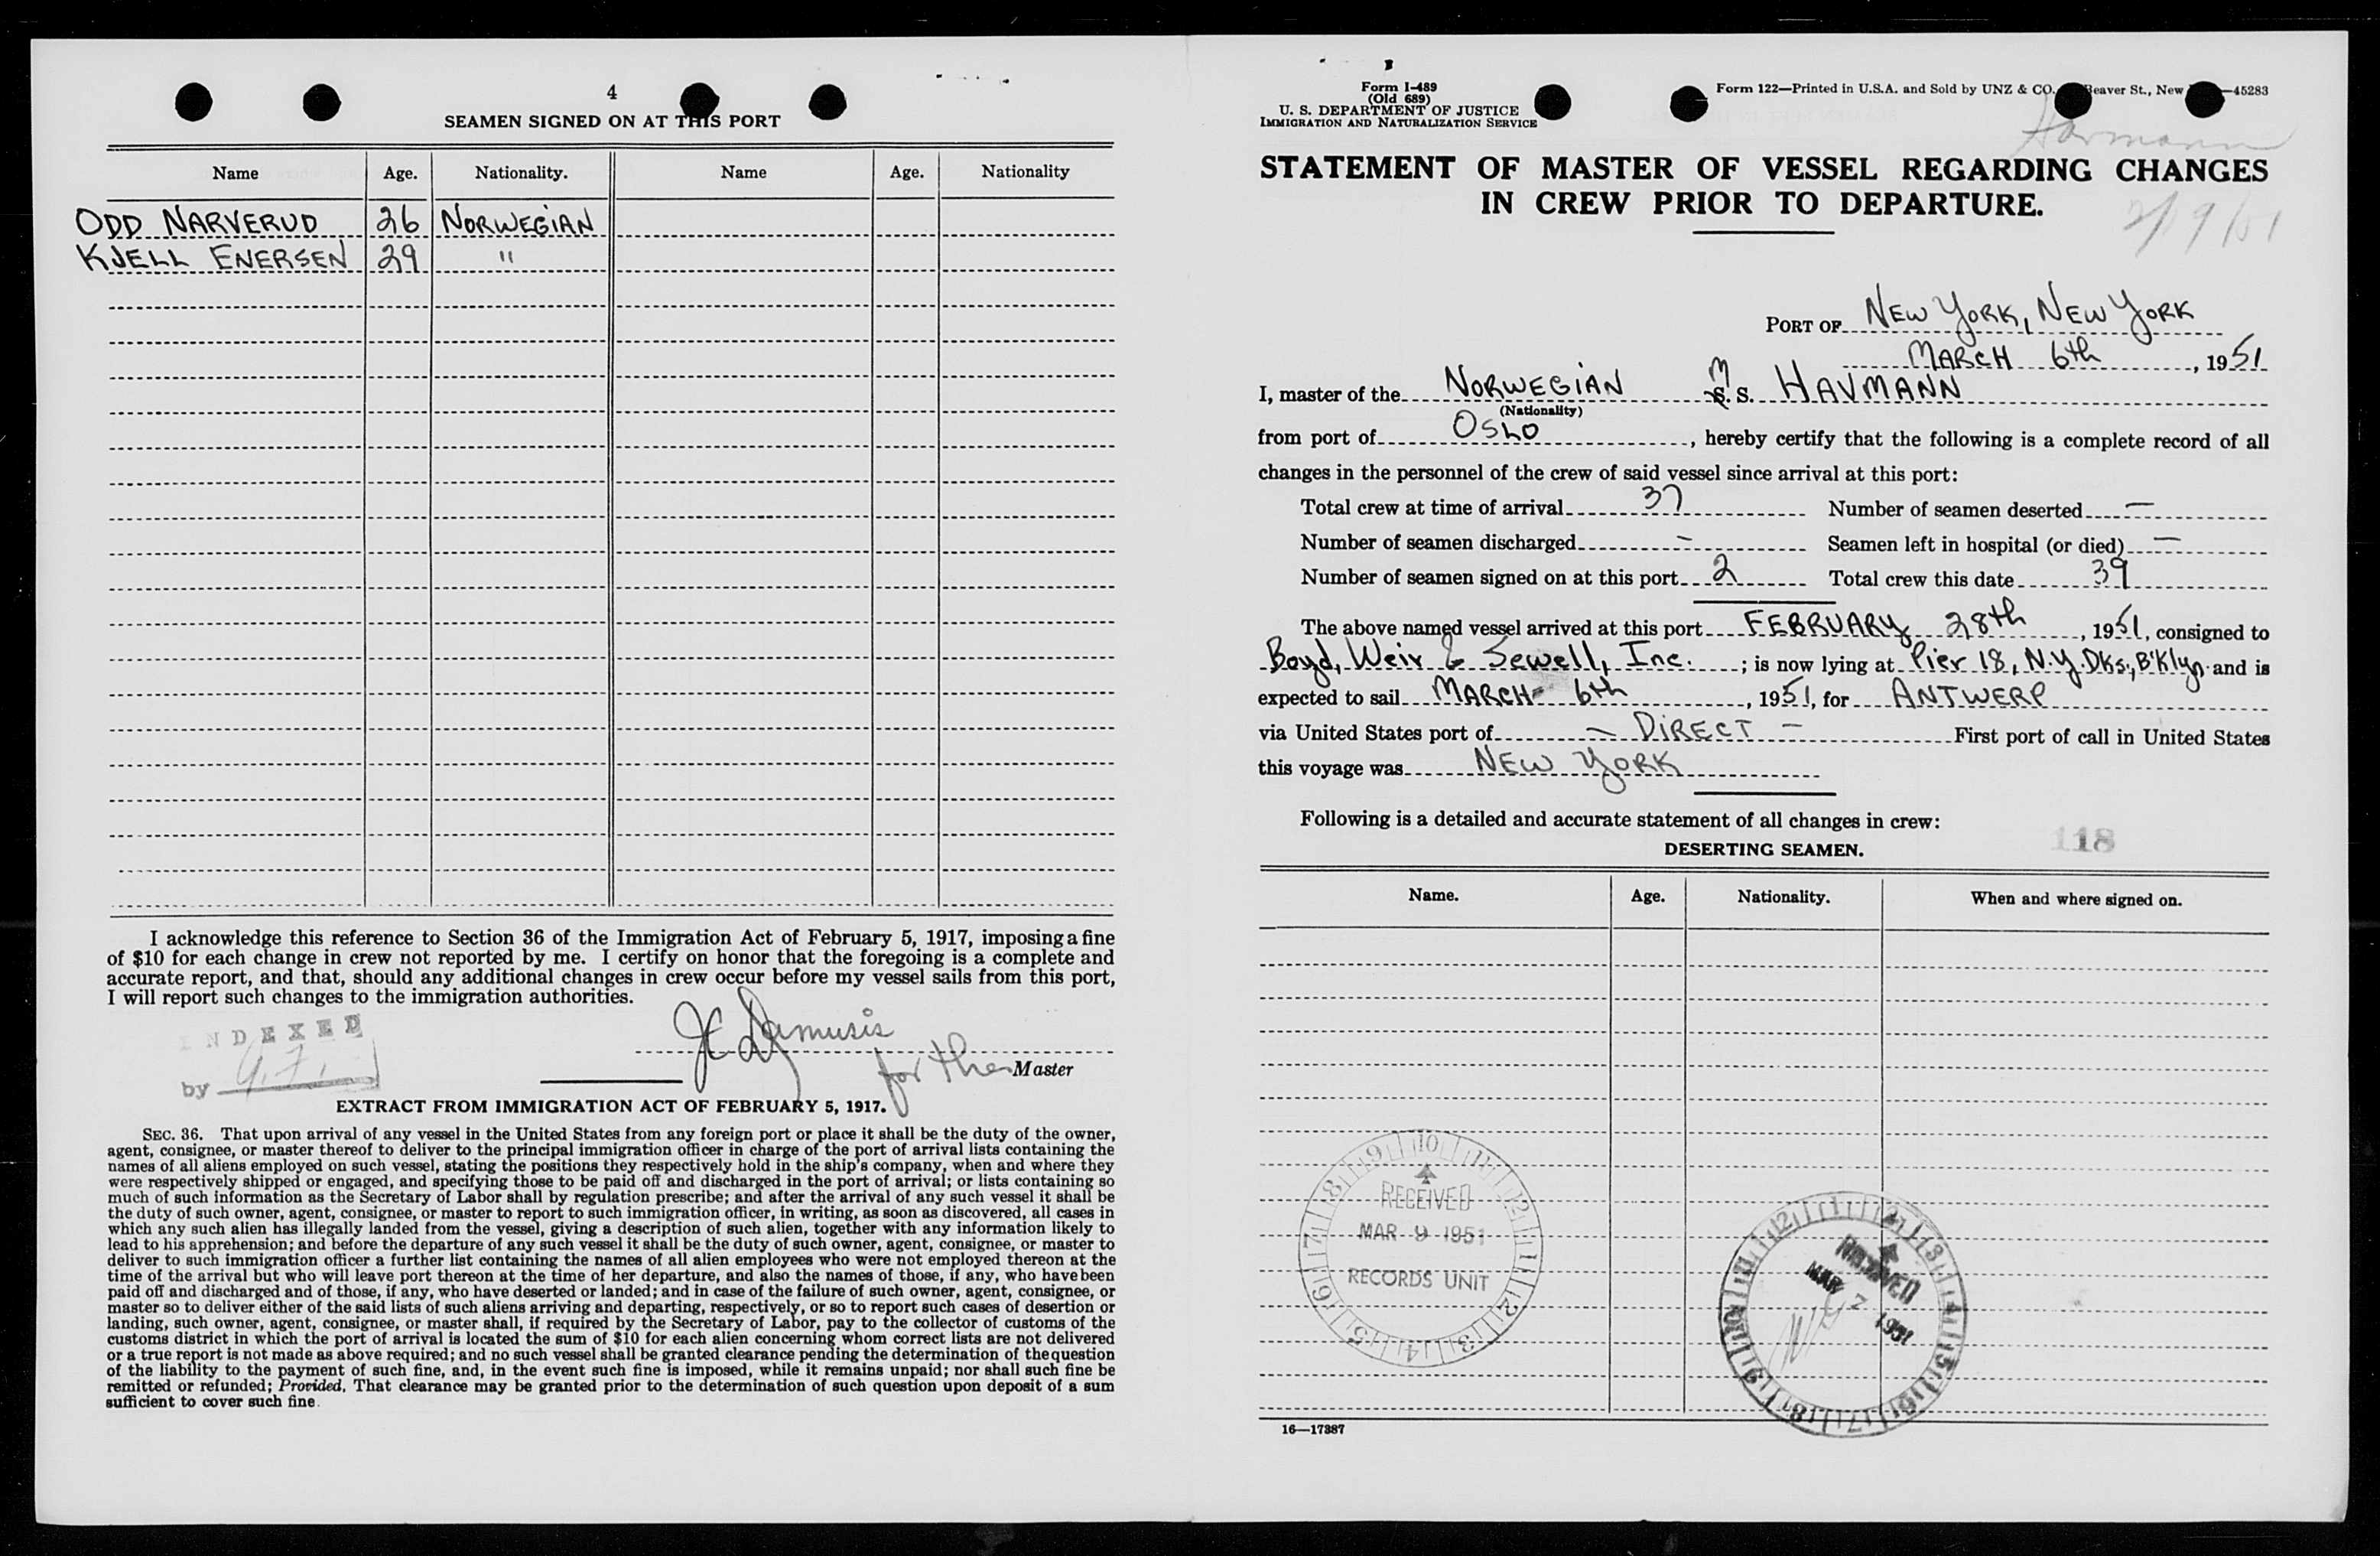 4
SEAMEN SIGNED ON AT THIS PORT
Name Age. Nationality. Name Age. Nationality
ODD NARVERUD 26 NORWEGIAN
KJELL ENERSEN 29 "
I acknowledge this reference to Section 36 of the Immigration Act of February 5, 1917, imposing a fine
of $10 for each change in crew not reported by me. I certify on honor that the foregoing is a complete and
accurate report, and that, should any additional changes in crew occur before my vessel sails from this port,
I will report such changes to the immigration authorities.
INDEXED
by
for the Master
EXTRACT FROM IMMIGRATION ACT OF FEBRUARY 5, 1917.
SEC. 36. That upon arrival of any vessel in the United States from any foreign port or place it shall be the duty of the owner,
agent, consignee, or master thereof to deliver to the principal immigration officer in charge of the port of arrival lists containing the
names of all aliens employed on such vessel, stating the positions they respectively hold in the ship's company, when and where they
were respectively shipped or engaged, and specifying those to be paid off and discharged in the port of arrival; or lists containing so
much of such information as the Secretary of Labor shall by regulation prescribe; and after the arrival of any such vessel it shall be
the duty of such owner, agent, consignee, or master to report to such immigration officer, in writing, as soon as discovered, all cases in
which any such alien has illegally landed from the vessel, giving a description of such alien, together with any information likely to
lead to his apprehension; and before the departure of any such vessel it shall be the duty of such owner, agent, consignee, or master to
deliver to such immigration officer a further list containing the names of all alien employees who were not employed thereon at the
time of the arrival but who will leave port thereon at the time of her departure, and also the names of those, if any, who have been
paid off and discharged and of those, if any, who have deserted or landed; and in case of the failure of such owner, agent, consignee, or
master so to deliver either of the said lists of such aliens arriving and departing, respectively, or so to report such cases of desertion or
landing, such owner, agent, consignee, or master shall, if required by the Secretary of Labor, pay to the collector of customs of the
customs district in which the port of arrival is located the sum of $10 for each alien concerning whom correct lists are not delivered
or a true report is not made as above required; and no such vessel shall be granted clearance pending the determination of the question
of the liability to the payment of such fine, and, in the event such fine is imposed, while it remains unpaid; nor shall such fine be
remitted or refunded; Provided, That clearance may be granted prior to the determination of such question upon deposit of a sum
sufficient to cover such fine.
Form I-489
(Old 689)
U. S. DEPARTMENT OF JUSTICE
IMMIGRATION AND NATURALIZATION SERVICE
Form 122—Printed in U.S.A. and Sold by UNZ & CO. Beaver St., New —45283
STATEMENT OF MASTER OF VESSEL REGARDING CHANGES
IN CREW PRIOR TO DEPARTURE.
PORT OF NEW YORK, NEW YORK
MARCH 6th, 1951
I, master of the NORWEGIAN M. S. HAVMANN
(Nationality)
from port of OSLO, hereby certify that the following is a complete record of all
changes in the personnel of the crew of said vessel since arrival at this port:
Total crew at time of arrival 37 Number of seamen deserted —
Number of seamen discharged - Seamen left in hospital (or died) —
Number of seamen signed on at this port 2 Total crew this date 39
The above named vessel arrived at this port FEBRUARY 28th, 1951, consigned to
Boyd, Weir & Sewell, Inc.; is now lying at Pier 18, N.Y. Dks., B'Klyn. and is
expected to sail MARCH 6th, 1951, for ANTWERP
via United States port of - DIRECT - First port of call in United States
this voyage was NEW YORK
Following is a detailed and accurate statement of all changes in crew:
118
DESERTING SEAMEN.
Name. Age. Nationality. When and where signed on.
RECEIVED
MAR 9 1951
RECORDS UNIT
RECEIVED
MAR 7 1951
16—17387